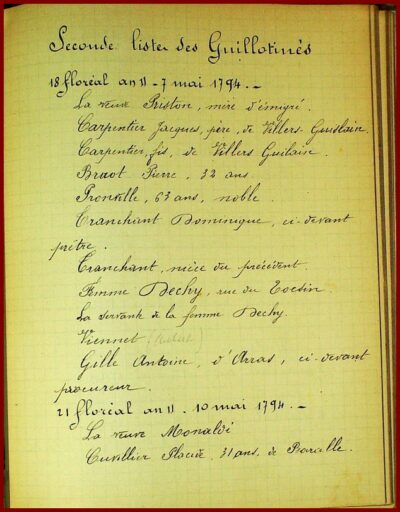 Seconde liste des Guillotinés
18 floréal an II - 7 mai 1794. -
La veuve Priston, mère d'émigré.
Carpentier Jacques, père, de Villers-Guislain.
Carpentier, fils, de Villers Guilain.
Braot Pierre, 32 ans
Pronville, 63 ans, noble.
Cranchant Dominique, ci-devant
prêtre.
Cranchant, nièce du précédent.
Femme Dechy, rue du Tocsin.
La servante de la femme Dechy.
Viennet
Gille Antoine, d'Arras, ci-devant
procureur.
21 floréal an II - 10 mai 1794. -
La veuve Monaldi
Cuvillier Placide, 31 ans, de Baralle.